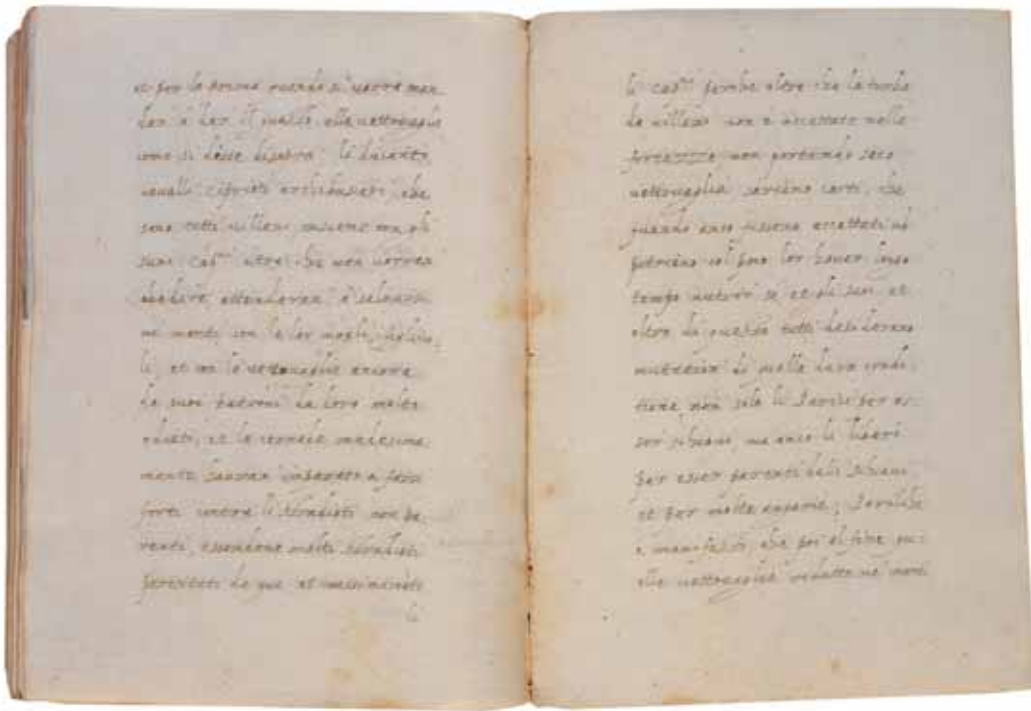 et per le prime quando si vorrà man
dar a dar il guasto alle vettovaglie
come si disse di sopra: li ducento
cavalli ciprioti archibusieri che
sono tutti villani insieme con gli
suoi cap.ni oltre che non vorran
obedire attenderan a salvarsi
ne monti con le lor mogli, figliuo
li, et con le vettovaglie ancora
de suoi patroni da loro molto
odiati, et le cernede medesima
mente havran imparato a farsi
forti contra li stradioti non pa
renti, essendone molti stradioti
li
li cap.ni perche oltre che la turba
de villani non è accettata nelle
fortezze non portando seco
vettovaglia sariano certi, che
quando anco fussero accettati nō
potriano col poco lor haver longo
tempo nutrir se et gli suoi et
oltra di questo tutti desiderano
mutation di quella dura condi
tione, non solo li Parici per es
ser schiavi, ma anco li liberi
per esser parenti delli schiavi
et per molte angarie; Parendo
è manifesto, che poi el fine
elle vettovaglie redutte ne monti